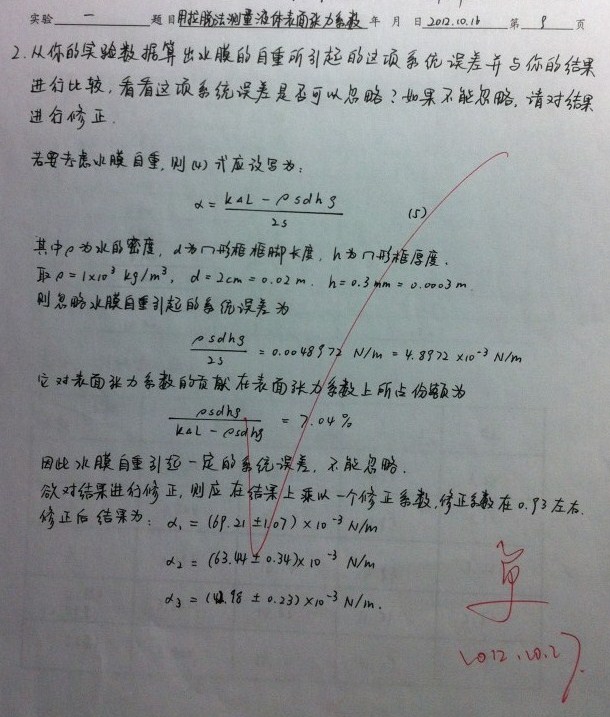 实验 一 题目 用拉脱法测量液体表面张力系数 年 月 日 2012.10.16 第 9 页
2. 从你的实验数据算出水膜的自重所引起的这项系统误差并与你的结果
进行比较,看看这项系统误差是否可以忽略?如果不能忽略,请对结果
进行修正.
若要考虑水膜自重,则(4)式应该写为:
α = (k△L - ρsdhg) / 2s (5)
其中ρ为水的密度, d为门形框框脚长度, h为门形框厚度.
取 ρ = 1×10³ kg/m³, d = 2cm = 0.02 m. h = 0.3 mm = 0.0003 m.
则忽略水膜自重引起的系统误差为
ρsdhg / 2s = 0.0048972 N/m = 4.8972 ×10⁻³ N/m
它对表面张力系数的贡献在表面张力系数上所占份额为
ρsdhg / (k△L - ρsdhg) = 7.04%
因此水膜自重引起一定的系统误差,不能忽略.
欲对结果进行修正,则应在结果上乘以一个修正系数,修正系数在0.93左右.
修正后结果为: α₁ = (69.21 ± 1.07) × 10⁻³ N/m
α₂ = (63.44 ± 0.34) × 10⁻³ N/m
α₃ = ( ± 0.23) × 10⁻³ N/m.
2012.10.27